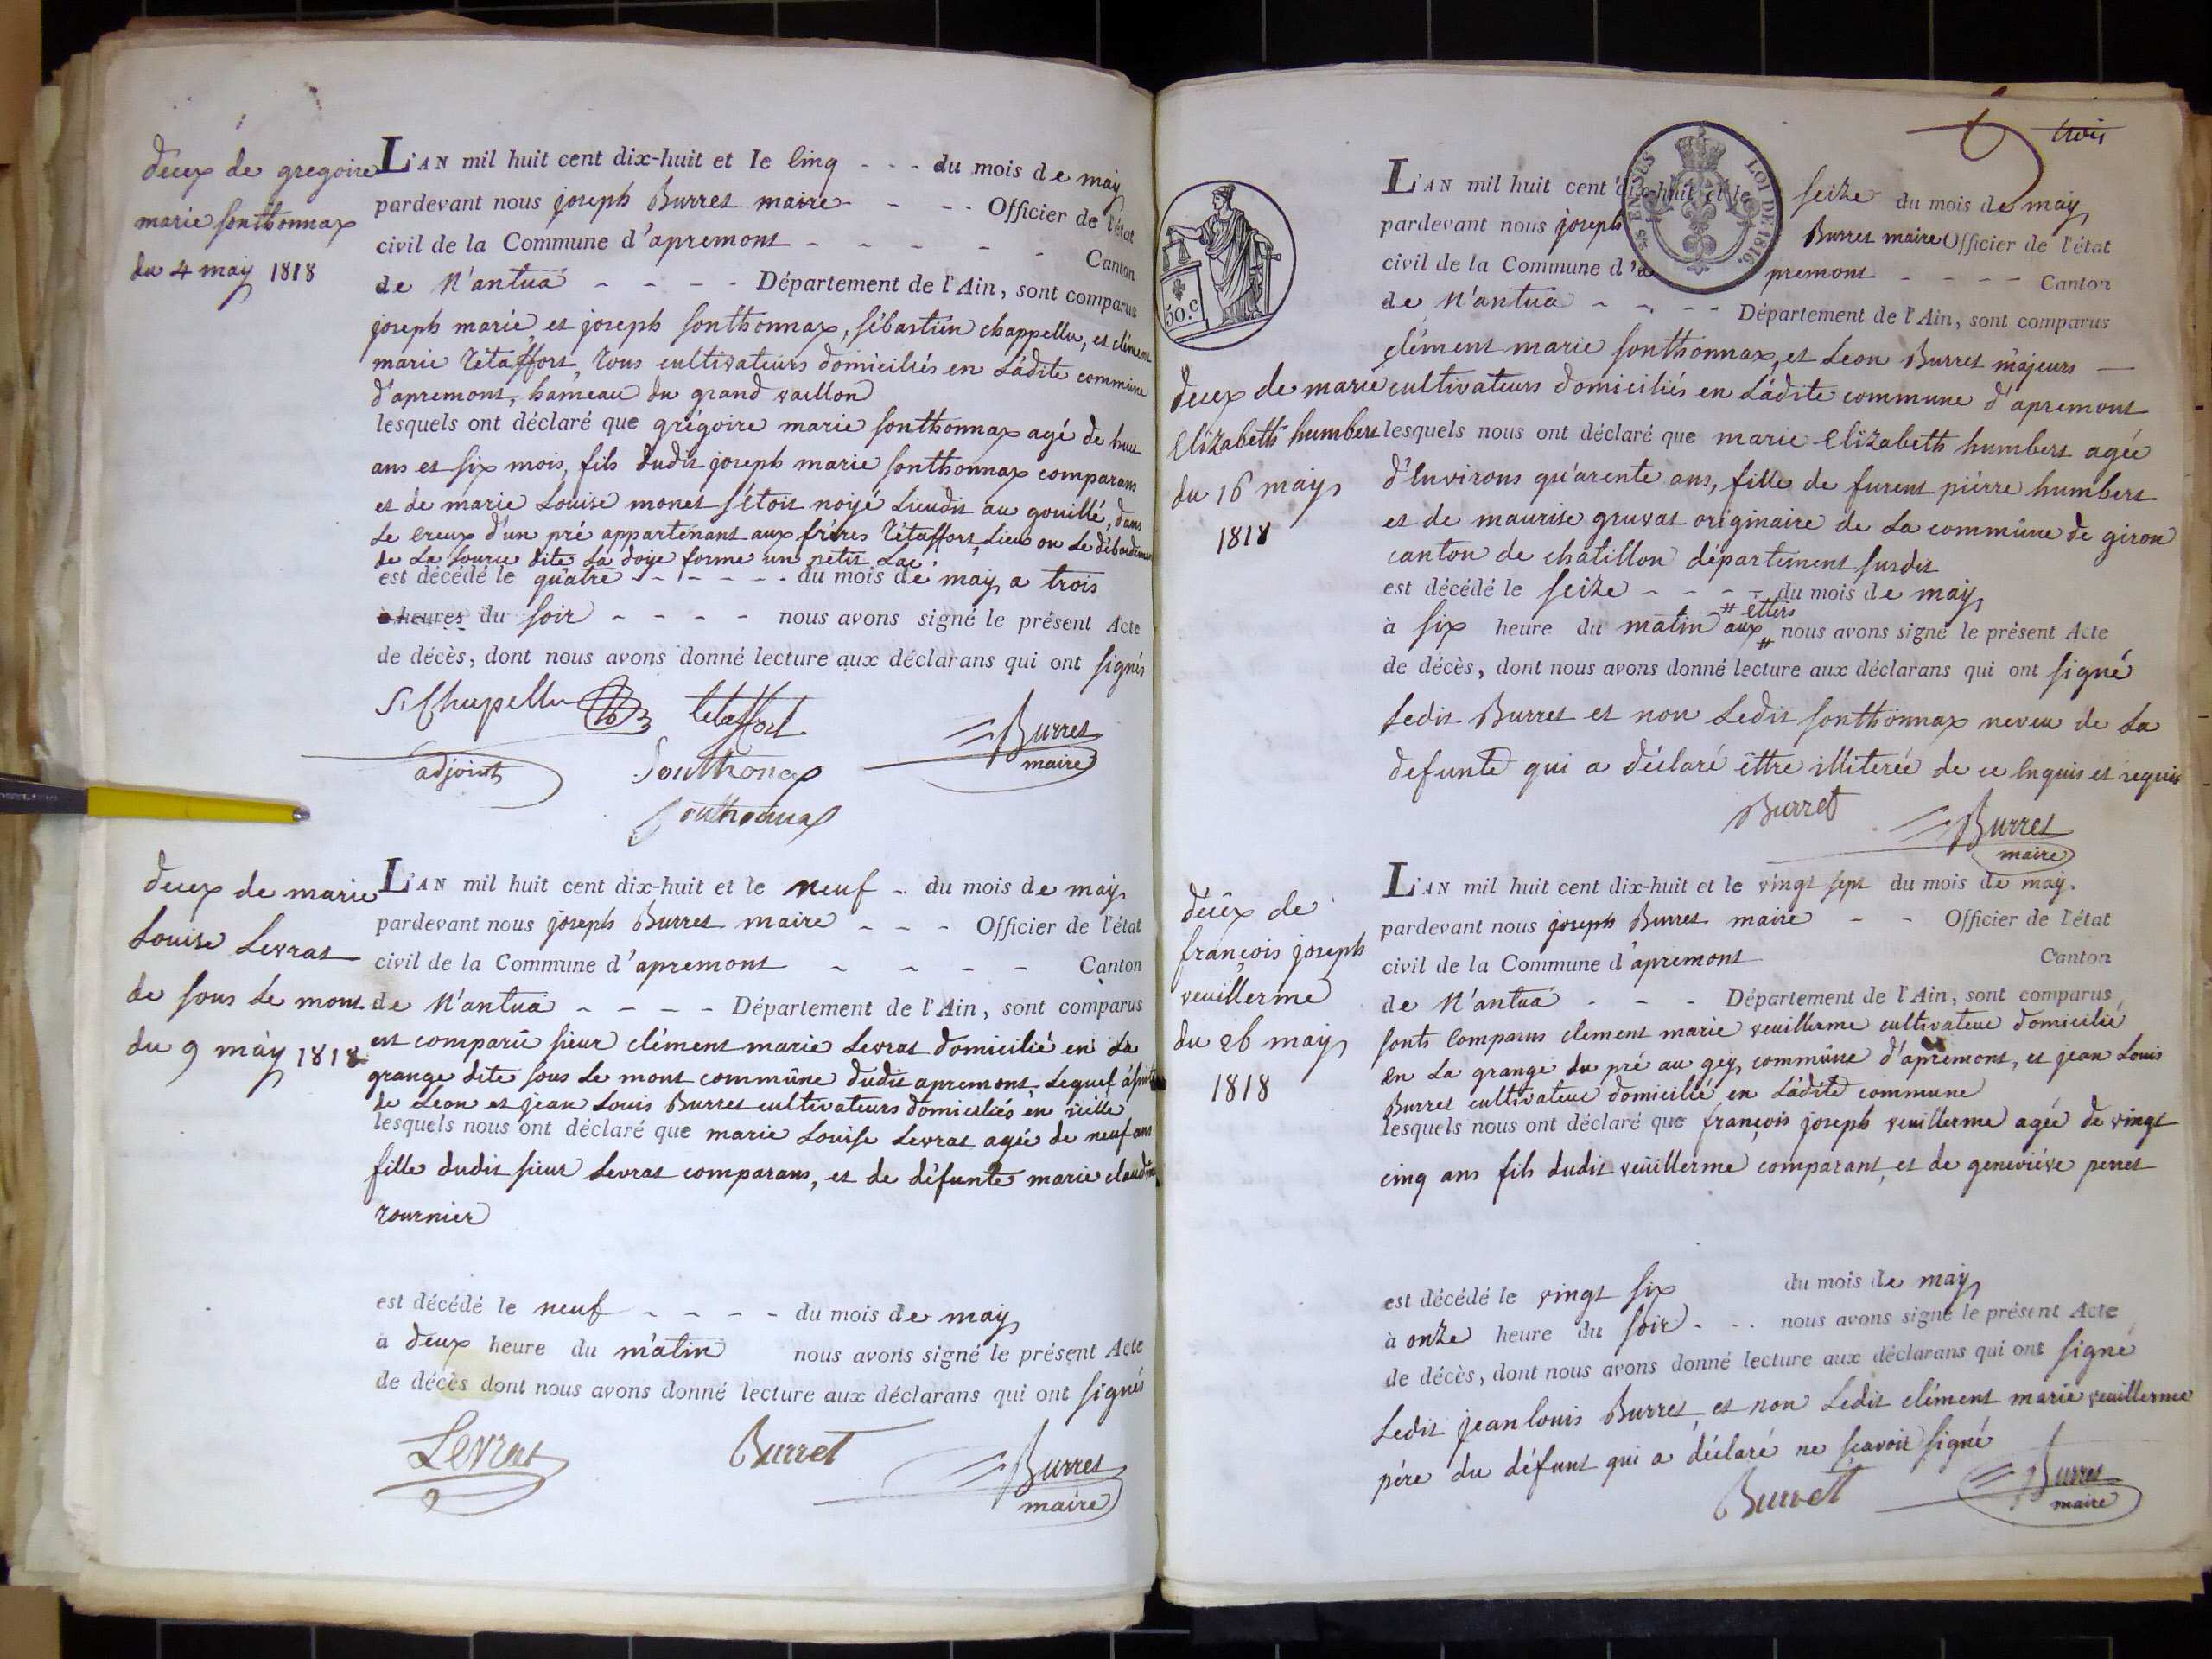 décex de gregoire
marie sonthonnax
du 4 may 1818
L'AN mil huit cent dix-huit et le cinq - - - du mois de may
pardevant nous joseph Burret maire - - - Officier de l'état
civil de la Commune d'apremont - - - - - Canton
de N'antua - - - - Département de l'Ain, sont comparus
joseph marie et joseph sonthonnax, sébastiën chappellu, et clément
marie tétaffort, tous cultivateurs domiciliés en Ladite commune
d'apremont, hameau du grand vaillon
lesquels ont déclaré que grégoire marie sonthonnax agé de huit
ans et six mois, fils dudit joseph marie sonthonnax comparans
et de marie Louise monet s'étoit noÿé Lieudit au gouillé, dans
Le creux d'un pré appartenant aux fréres tétaffort, Lieu ou Le débordement
de La source dite La doye forme un petit Lac.
est décédé le quatre - - - - - du mois de may a trois
à heures du soir - - - - nous avons signé le présent Acte
de décès, dont nous avons donné lecture aux déclarans qui ont signés
S. Chapellu tétaffort Burret
adjoint Sonthonax maire
Sonthonnax
décex de marie
Louise Levrat
de sous Le mont
du 9 may 1818
L'AN mil huit cent dix-huit et le neuf - du mois de may
pardevant nous joseph Burret maire - - - Officier de l'état
civil de la Commune d'apremont - - - - Canton
de N'antua - - - - Département de l'Ain, sont comparus
est comparû sieur clément marie Levrat domicilié en La
grange dite sous Le mont commûne dudit apremont Lequel
de Leon et jean Louis Burret cultivateurs domiciliés en
lesquels nous ont déclaré que marie Louise Levrat agée de neuf ans
fille dudit sieur Levrat comparans, et de défunte marie claudine
tournier
est décédé le neuf - - - - du mois de may
a deux heure du matin nous avons signé le présent Acte
de décès dont nous avons donné lecture aux déclarans qui ont signés
Levrat Burret Burret
maire
trois
ENSUS LOI DE 1816.
50.C
décex de marie
Elizabeth humbert
du 16 may
1818
L'AN mil huit cent dix-huit et le seize du mois de may
pardevant nous joseph Burret maire Officier de l'état
civil de la Commune d'apremont - - - - Canton
de N'antua - - - - Département de l'Ain, sont comparus
clément marie sonthonnax, et Leon Burret majeurs —
cultivateurs domiciliés en Ladite commune d'apremont
lesquels nous ont déclaré que marie Elizabeth humbert agée
d'Environs qu'arente ans, fille de furent piérre humbert
et de maurise gruvat originaire de La commûne de giron
canton de châtillon département susdit
est décédé le seize - - - - du mois de may
à six heure du matin aux # etters # nous avons signé le présent Acte
de décès, dont nous avons donné lecture aux déclarans qui ont signé
Ledit Burret et non Ledit sonthonnax neveu de La
defunte qui a déclaré êttre illiterée de ce Enquis et requis
Burret Burret
maire
décêx de
françois joseph
veuillerme
du 26 may
1818
L'AN mil huit cent dix-huit et le vingt sept du mois de may.
pardevant nous joseph Burret maire - - Officier de l'état
civil de la Commune d'apremont Canton
de N'antua - - - Département de l'Ain, sont comparus
sonts Comparus clement marie veuillerme cultivateur domicilié
en La grange du pré au gey commûne d'apremont, et jean Louis
Burret cultivateur domicilié en Ladite commune
lesquels nous ont déclaré que françois joseph veuillerme agée de vingt
cinq ans fils dudit veuillerme comparant, et de geneviéve perret
est décédé le vingt six du mois de may
à onze heure du soir - - - nous avons signé le présent Acte
de décès, dont nous avons donné lecture aux déclarans qui ont signé
Ledit jean louis Burret, et non Ledit clément marie veuillerme
pére du défunt qui a déclaré ne sçavoir signé
Burret Burret
maire